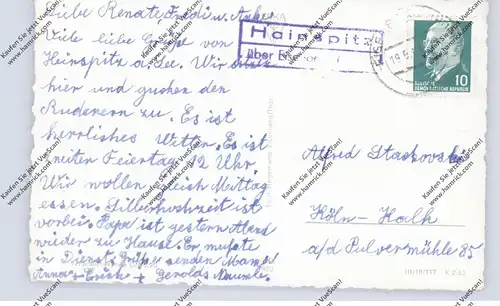 Liebe Renate, Fredi u. Anke
Viele liebe Grüße von
Hainspitz a. See. Wir
hier und guchen den
Ruderern zu. Es ist
herrliches Wetter. Es ist
zweiten Feiertag 12 Uhr
Wir wollen gleich Mittag
essen. Silberhochzeit ist
vorbei. Papa ist gestern Abend
wieder zu Hause. Er mußte
in Dienst. Grüße senden Mama
Anna Erich Gerolds
Hainspitz
über
DEUTSCHE
DEMOKRATISCHE REPUBLIK
10
Alfred Staskovski
Köln-Kalk
a/d Pulvermühle 85
III/18/117 K 2 63
Kaufen Sie jetzt VueScan!
www.hamrick.com